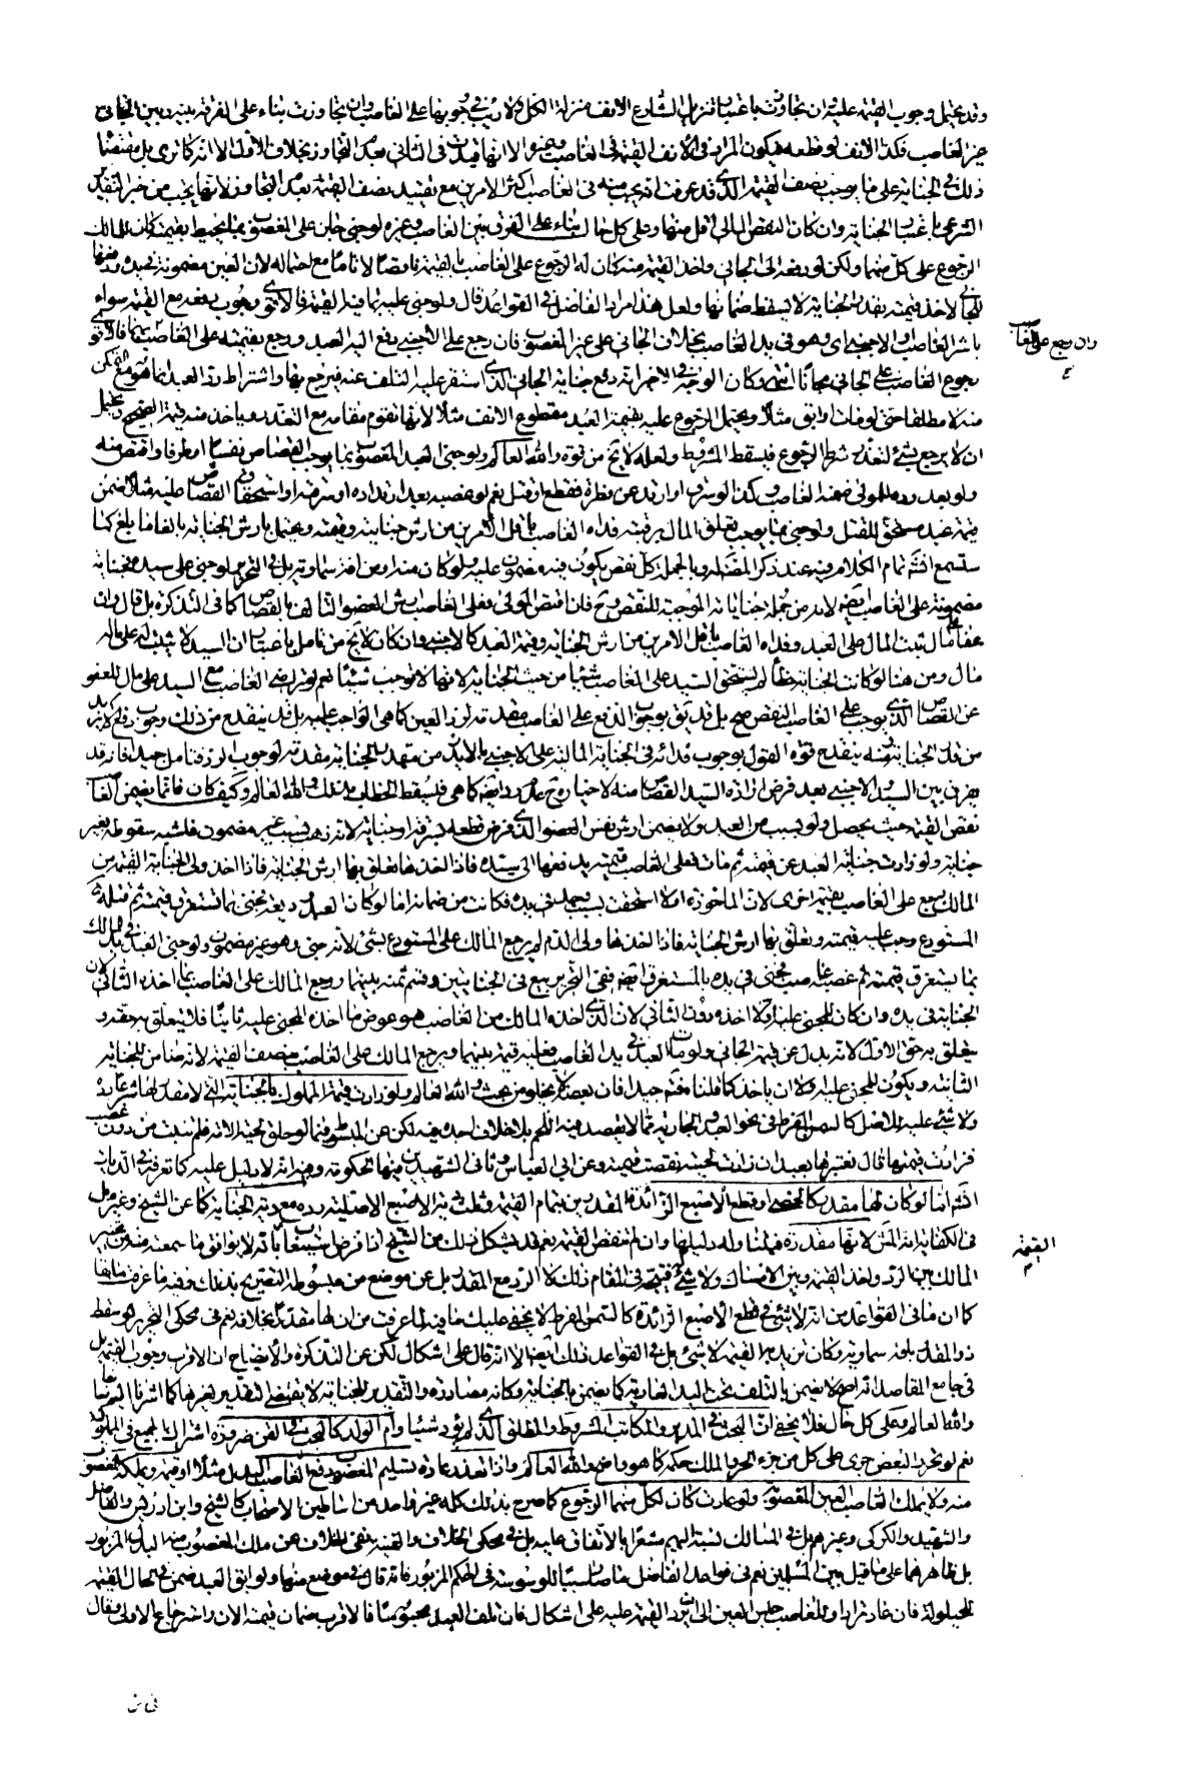 وقد يحتمل وجوب القيمة عليه ان تجاوزت باعتبار تنزيل الشارع الانف منزلة الكل ولا ريب في وجوبها على الغاصب وان تجاوزت بناء على الفرق بينه وبين الجاني
غير الغاصب فكذا الانف لو قطعه فيكون المراد في الانف القيمة في الغاصب
ذلك في الجناية على ما يوجب نصف القيمة الذي قد عرفت انه يجب منه في الغاصب اكثر الامرين مع تقييد نصف القيمة بعدم التجاوز لانها يجب من غير التقدير
الشرعي باعتبار الجناية وان كان النقص المالي اقل منها وعلى كل حال بناء على الفرق بين الغاصب وغيره لو جنى جان على المغصوب بما يحيط بقيمته كان للمالك
الرجوع على كل منهما ولكن لو دفعه الى الجاني واخذ القيمة منه كان له الرجوع على الغاصب بالقيمة ناقصا لا تاما مع احتماله لان العين مضمونة
لاخذ قيمته بقدر الجناية لا يسقط ضمانها ولعل هذا مراد الفاضل في القواعد قال ولو جنى عليه بما فيه القيمة فالاقوى وجوب دفعه مع القيمة سواء
باشر الغاصب او الاجنبي اي وهو في يد الغاصب بخلاف الجاني على غير المغصوب فان رجع على الاجنبي دفع اليه العبد ورجع بقيمته على الغاصب فالاقوى
وان رجع على الغاصب
رجوع الغاصب على الجاني مجانا انتهى وكان الوجه في الاخير انه دفع جناية الجاني الذي استقر عليه التلف عنه فيرجع بها واشتراط رد العبد انما هو مع التمكن
منه لا مطلقا حتى لو مات او ابق مثلا ويحتمل الرجوع عليه بقيمة العبد مقطوع الانف مثلا لانها تقوم مقامه مع التعذر فياخذ منه قيمة الصحيح ويحتمل
ان لا يرجع بشئ لتعذر شرط الرجوع فيسقط المشروط ولعله لا يخ من قوة والله العالم ولو جنى العبد المغصوب بما يوجب القصاص نفسا او طرفا واقتص منه
ولو بعد رده للمولى ضمنه الغاصب وكذا لو سرق او ارتد عن فطرة فقطع او قتل نعم لو غصبه بعد ارتداده او سرقته او استحقاق القصاص عليه مثلا ضمن
قيمة عبد مستحق للقتل ولو جنى بما يوجب تعلق المال برقبته فداه الغاصب باقل الامرين من ارش جنايته وقيمته ويحتمل بارش الجناية بالغا ما بلغ كما
ستسمع انشاء تمام الكلام فيه عند ذكر المصنف له وبالجملة كل نقص يكون فيه مضمون عليه ولو كان منه او من افة سماوية بل في التحرير لو جنى على سيده فجنايته
مضمونة على الغاصب ايضا لانه من جملة جناياته الموجبة للنقص وح فان اقتص المولى فعلى الغاصب ارش العضو التالف بالقصاص كما في التذكرة بل قال وان
عفا على مال ثبت المال على العبد وفداه الغاصب باقل الامرين من ارش الجناية وقيمة العبد كالاجنبي وان كان لا يخ من تامل باعتبار ان السيد لا يثبت له على ماله
مال ومن هنا لو كانت الجناية خطأ لم يستحق السيد على الغاصب شيئا من حيث الجناية لانها لا توجب شيئا نعم لو تراضي الغاصب مع السيد على مال للعفو
عن القصاص الذي يوجب على الغاصب النقص صح بل قد يق بوجوب الدفع على الغاصب مقدمة لرد العين كما هي الواجب عليه بل قد ينقدح من ذلك وجوب
من قبل الجناية ومنه ينقدح قوة القول بوجوب فدائه في الجناية المالية على الاجنبي بالازيد من متعهد الجناية مقدمة لوجوب الرد فتامل جيدا فانه قد
يفرق بين السيد والاجنبي بعد فرض ارادة السيد القصاص منه لاختياره ح عدم رده اليه كما هي فيسقط الخطاب بذلك والله العالم وكيف كان فانما يضمن الغاصب
نقص القيمة حيث يحصل ولو بسبب من العبد ولا يضمن ارش نفس العضو الذي فرض قطعه بسرقة او جناية لانه ذهب بسبب غير مضمون فاشبه سقوطه بغير
جناية ولو زادت جناية العبد عن قيمته ثم مات فعلى الغاصب قيمته يدفعها الى سيده فاذا اخذها تعلق بها ارش الجناية فاذا اخذ ولي الجناية القيمة من
المالك رجع على الغاصب بقيمة اخرى لان الماخوذة اولا استحقت بسبب وجد في يده فكانت من ضمانه اما لو كان العبد وديعة فجنى بما تستغرق قيمته ثم قتله
المستودع وجب عليه قيمته وتعلق بها ارش الجناية فاذا اخذها ولي الدم لم يرجع المالك على المستودع بشئ لانه جنى وهو غير مضمون ولو جنى العبد في يد المالك
بما يستغرق قيمته ثم غصبه غاصب فجنى في يده بالمستغرق ايضا ففي التحرير بيع في الجنايتين وقسم ثمنه بينهما ورجع المالك على الغاصب بما اخذه الثاني لان
الجناية في يده وان كان للمجني عليه اولا اخذه دون الثاني لان الذي اخذه المالك من الغاصب هو عوض ما اخذه المجني عليه ثانيا فلا يتعلق به حقه و
يتعلق به حق الاول لانه بدل عن قيمة الجاني ولو مات العبد في يد الغاصب فعليه قيمته بينهما ويرجع المالك على الغاصب بنصف القيمة لانه ضامن للجناية
الثانية ويكون للمجني عليه اولا ان ياخذ كما قلنا فتم جيدا فان بعضه لا يخلو من بحث والله العالم ولو زادت قيمة المملوك بالجناية التي لا مقدر لها شرعا رده
ولا شئ عليه للاصل كالسمن المفرط في نحو العبد والجارية مما لا يقصد منه اللحم بلا خلاف اجده فيه لكن عن المبسوط فيما لو حلق لحية الامة فلم تنبت من دون غصب
فزادت قيمتها قال نعتبرها بعبد ان زادت لحيته نقصت قيمته وعن ابي العباس وثاني الشهيدين فيها الحكومة وفيه انه لا دليل عليه كما تعرفه في الديات
انشاء اما لو كان لها مقدر كالخصي او قطع الاصبع الزائدة فالمقدر من تمام القيمة وثلث دية الاصبع الاصلية رده مع دية الجناية كما عن الشيخ وغيره بل
في الكفاية انه المشهور لانها مقدرة فيملكنا وله دليلها وان لم تنقص القيمة نعم قد يشكل ذلك من الشيخ اذا فرض استيعابا بانه لا يوافق ما سمعته منه من تخيير
القيمة
المالك بين الرد واخذ القيمة وبين الامساك ولا شئ فيتجه في المقام ذلك لا الرد مع المقدر بل عن موضع من مبسوطه التصريح بذلك وفيه ما عرفت سابقا
كما ان ما في القواعد من انه لا شئ في قطع الاصبع الزائدة كالسمن المفرط لا يخفى عليك ما فيه لما عرفت من ان لها مقدرا بخلافه نعم في محكي التحرير لو سقط
ذو المقدر بافة سماوية وكان تزيد به القيمة لا شئ بل في القواعد ذلك ايضا الا انه قال على اشكال لكن عن التذكرة والايضاح ان الاقرب وجوب القيمة بل
في جامع المقاصد انه اصح لانه يضمن بالتلف تحت اليد العادية كما يضمن بالجناية وكانه مصادرة والتقدير للجناية لا يقتضي التقدير لغيرها كما اشرنا اليه سابقا
والله العالم وعلى كل حال فلا يخفى ان البحث في المدبر والمكاتب المشروط والمطلق الذي لم يؤد شيئا وام الولد كالبحث في القن ضرورة اشتراك الجميع في المملوكية
نعم لو تحرر البعض جرى على كل من جزء الحر والملك حكمه كما هو واضح والله العالم واذا تعذر عادة تسليم المغصوب دفع الغاصب البدل مثلا او قيمة ويملكه المغصوب
منه ولا يملك الغاصب العين المغصوبة ولو عادت كان لكل منهما الرجوع كما صرح بذلك كله غير واحد من اساطين الاصحاب كالشيخ وابن ادريس والفاضل
والشهيد والكركي وغيرهم بل في المسالك نسبته اليهم مشعرا بالاتفاق عليه بل في محكي الخلاف والغنية نفي الخلاف عن ملك المغصوب منه البدل المزبور
بل ظاهرهما على ما قيل بين المسلمين نعم في قواعد الفاضل ما صار سببا للوسوسة في الحكم المزبور فانه قال في موضع منها ولو ابق العبد ضمن في الحال القيمة
للحيلولة فان عاد ترادا وللغاصب حبس العين الى ان يرد القيمة عليه على اشكال فان تلف العبد محبوسا فالاقرب ضمان قيمته الان واسترجاع الاولى وقال